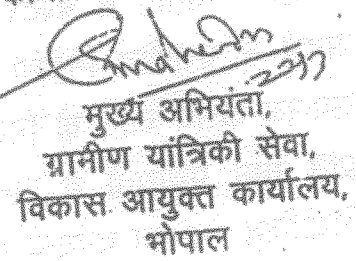 मुख्य अभियंता,
ग्रामीण यांत्रिकी सेवा,
विकास आयुक्त कार्यालय,
भोपाल